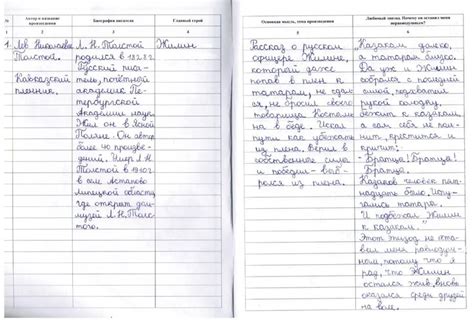 №
Автор и название произведения
Биография писателя
Главный герой
1
2
3
4
1.
Лев Николаевич
Толстой.
Кавказский
пленник.
Л. Н. Толстой
родился в 1828 г.
Русский писа-
тель, почётный
академик Пе-
тербургской
Академии наук.
Жил он в Ясной
Поляне. Он автор
более 40 произве-
дений. Умер Л.Н.
Толстой в 1910 г.
в селе Астапово
Липецкой области,
где открыт дом-
музей Л.Н.Толс-
того.
Жилин
Основная мысль, тема произведения
Любимый эпизод. Почему он оставил меня неравнодушным?
5
6
Рассказ о русском
офицере Жилине,
который даже
попав в плен к
татарам, не сдал-
ся, не бросил своего
товарища Костыли-
на в беде. Искал
пути как убежать
из плена. Верил в
собственные силы
и победил - выб-
рался из плена.
Казакам далеко,
а татарам близко.
Да уж и Жилин
собрался с последней
силой, подхватил
рукой колодку,
бежит к казакам,
а сам себя не пом-
нит, крестится и
кричит:
- Братцы! Братцы!
Братцы!
Казаков человек пят-
надцать было. Испу-
гались татары.
И подбежал Жилин
к казакам".
Этот эпизод не оста-
вил меня равнодуш-
ным, потому что я
рад, что Жилин
остался жив, вновь
оказался среди друзей
на воле.